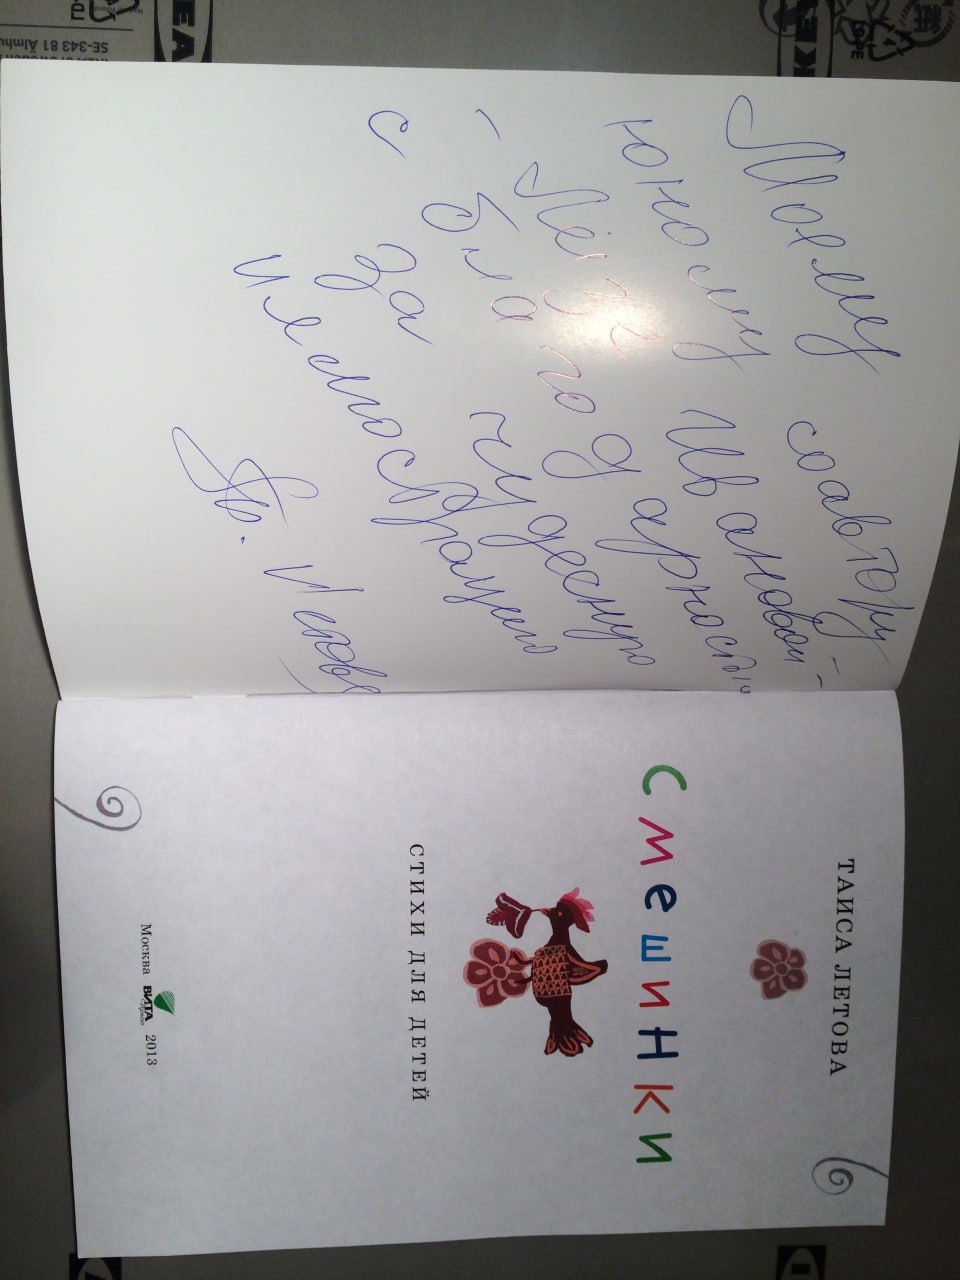 Моему соавтору
юному Ивановой -
- Лёзе
с благодарностью
за чудесную
иллюстрацию
Т. Летова
ТАИСА ЛЕТОВА
Смешинки
СТИХИ ДЛЯ ДЕТЕЙ
Москва ВИТА 2013
SE-343 81 Älmhu
PE